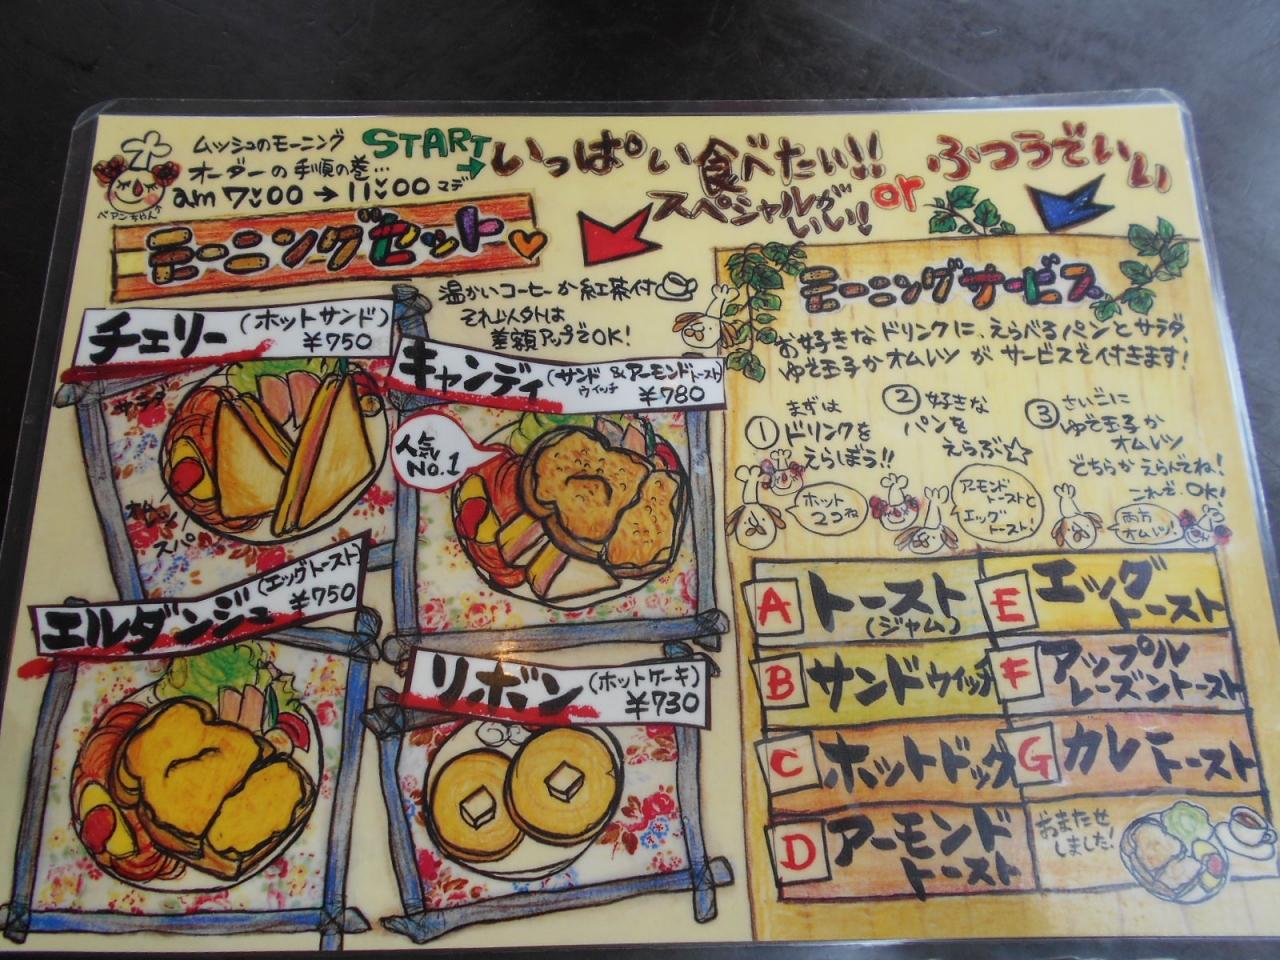 ムッシュのモーニング
オーダーの手順の巻…
am 7:00→11:00マデ
START
いっぱい食べたい!!
スペシャルが
いい!!
or
ふつうでいい
ペアンちゃん?
モーニングセット
温かいコーヒーか紅茶付
それ以外は
差額アップでOK!
チェリー(ホットサンド)
¥750
サラダ
オムレツ
スパ
キャンディ(サンドウィッチ&アーモンドトースト)
¥780
人気
NO.1
エルダンジュ(エッグトースト)
¥750
リボン(ホットケーキ)
¥730
モーニングサービス
お好きなドリンクに、えらべるパンとサラダ、
ゆで玉子かオムレツがサービスで付きます!
①まずは
ドリンクを
えらぼう!!
ホット
2コね
②好きな
パンを
えらぶ☆
アーモンド
トーストと
エッグ
トースト!
③さいごに
ゆで玉子か
オムレツ
どちらかえらんでね!
これでOK!
両方
オムレツ!
A トースト
(ジャム)
B サンドウィッチ
C ホットドック
D アーモンド
トースト
E エッグ
トースト
F アップル
レーズントースト
G カレー
トースト
おまたせ
しました!